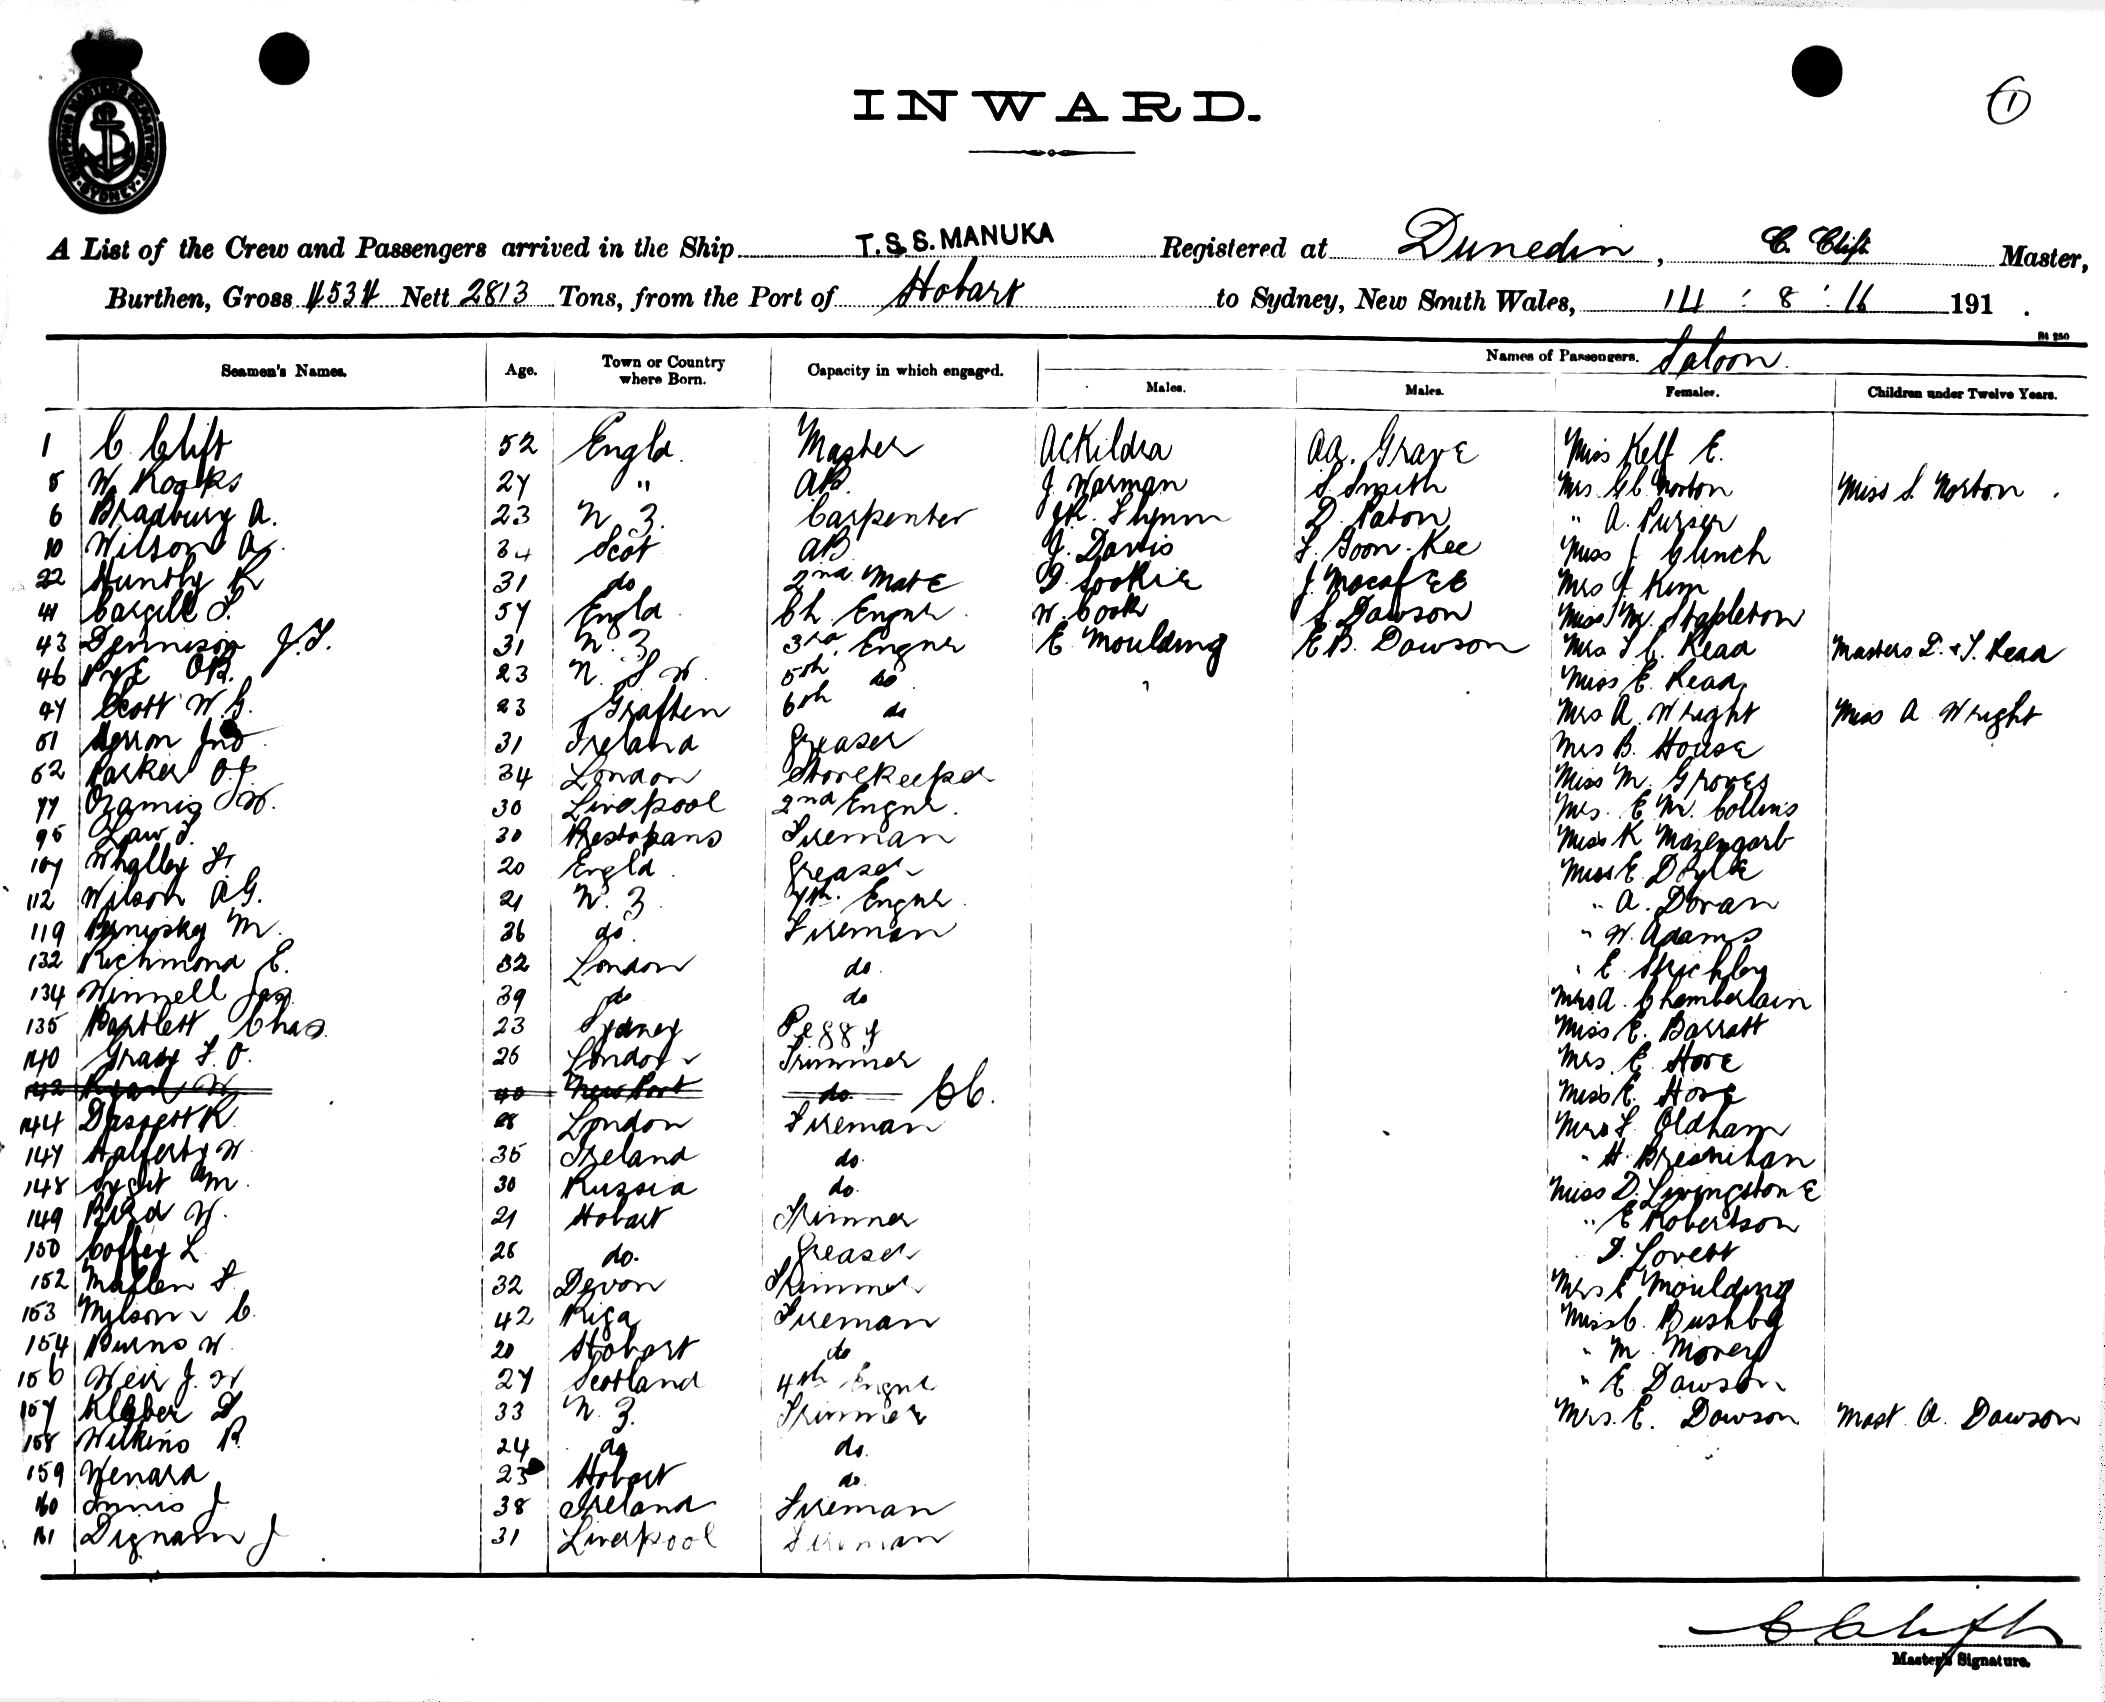 SHIPPING MASTER'S DEPARTMENT SYDNEY
1
INWARD.
A List of the Crew and Passengers arrived in the Ship T.S.S. MANUKA Registered at Dunedin, C. Clift Master,
Burthen, Gross 4534 Nett 2813 Tons, from the Port of Hobart to Sydney, New South Wales, 14 : 8 : 16 191 .
St 250
Seamen's Names. Age. Town or Country where Born. Capacity in which engaged. Names of Passengers. Saloon.
Males. Males. Females. Children under Twelve Years.
1 C. Clift 52 Engld. Master A C Kildea A A. Grave Miss Kelf E.
5 W. Rooks 27 " AB. J. Warman S Smith Mrs. G C Norton Miss S. Norton .
6 Bradbury A. 23 N Z. Carpenter J R. Flynn D. Paton " A. Purser
10 Wilson A. 34 Scot AB J. Davis F. Goon. Kee Miss J Glinch
22 Huntly R 31 do 2nd Mate G. Cookie J. Macafee Mrs J Kim
41 Cargill J. 57 Engld. Ch. Engnr. W. Cook S Dawson Miss M. Stapleton
43 Dennison J. F. 31 N. Z. 3rd. Engnr E Moulding E B. Dawson Mrs F C. Read Masters D. & J. Read
46 Pye O R. 23 N. S W. 5th do Miss E. Read
47 Scott W. G. 23 Graften 6th do Mrs A. Wright Miss A Wright
51 Jno 31 Ireland Greaser Mrs B. House
52 Parker O. J. 34 London Storekeeper Miss M. Groves
77 W. 30 Liverpool 2nd Engnr. Mrs. E M. Collins
95 Law J. 30 Prestopans Fireman Miss K Mazengarb
107 Whalley F. 20 Engld. Greaser Miss E. Doyle
112 Wilson A G. 21 N. Z. 7th. Engnr. " A. Doran
119 M. 36 do. Fireman " W. Adams
132 Richmond E. 32 London do. " E.
134 Winnell Jas. 39 do do Mrs A. Chamberlain
135 Bartlett Chas. 23 Sydney Peggy Miss E. Barratt
140 Grady F. O. 25 London Trimmer Mrs. E Hore
142 Ryan W 40 New Port do. CC. Miss E. Hore
144 K. 28 London Fireman Mrs F. Oldham
147 Halferty W. 35 Ireland do. " H. Bresnihan
148 M. 30 Russia do. Miss D. Livingstone
149 Bird W. 21 Hobart Trimmer " E Robertson
150 Coffey L 25 do. Greaser D. Lovett
152 Mallen F. 32 Devon Trimmer Mrs E Moulding
153 C. 42 Riga Fireman Miss C. Bushby
154 Burns W. 20 Hobart do " M
156 Weir J. W 27 Scotland 4th Engnr " E Dawson
157 33 N. Z. Trimmer Mrs. E. Dawson Mast. A. Dawson
158 Wilkins R. 24 do do.
159 23 Hobart do.
160 Innis J 38 Ireland Fireman
161 Dignam J 31 Liverpool Fireman
C Clift
Master's Signature.